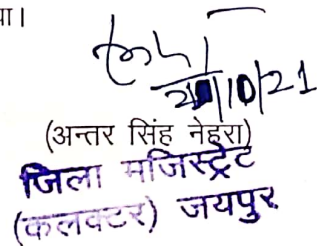 या।
/10/21
(अन्तर सिंह नेहरा)
जिला मजिस्ट्रेट
(कलक्टर) जयपुर